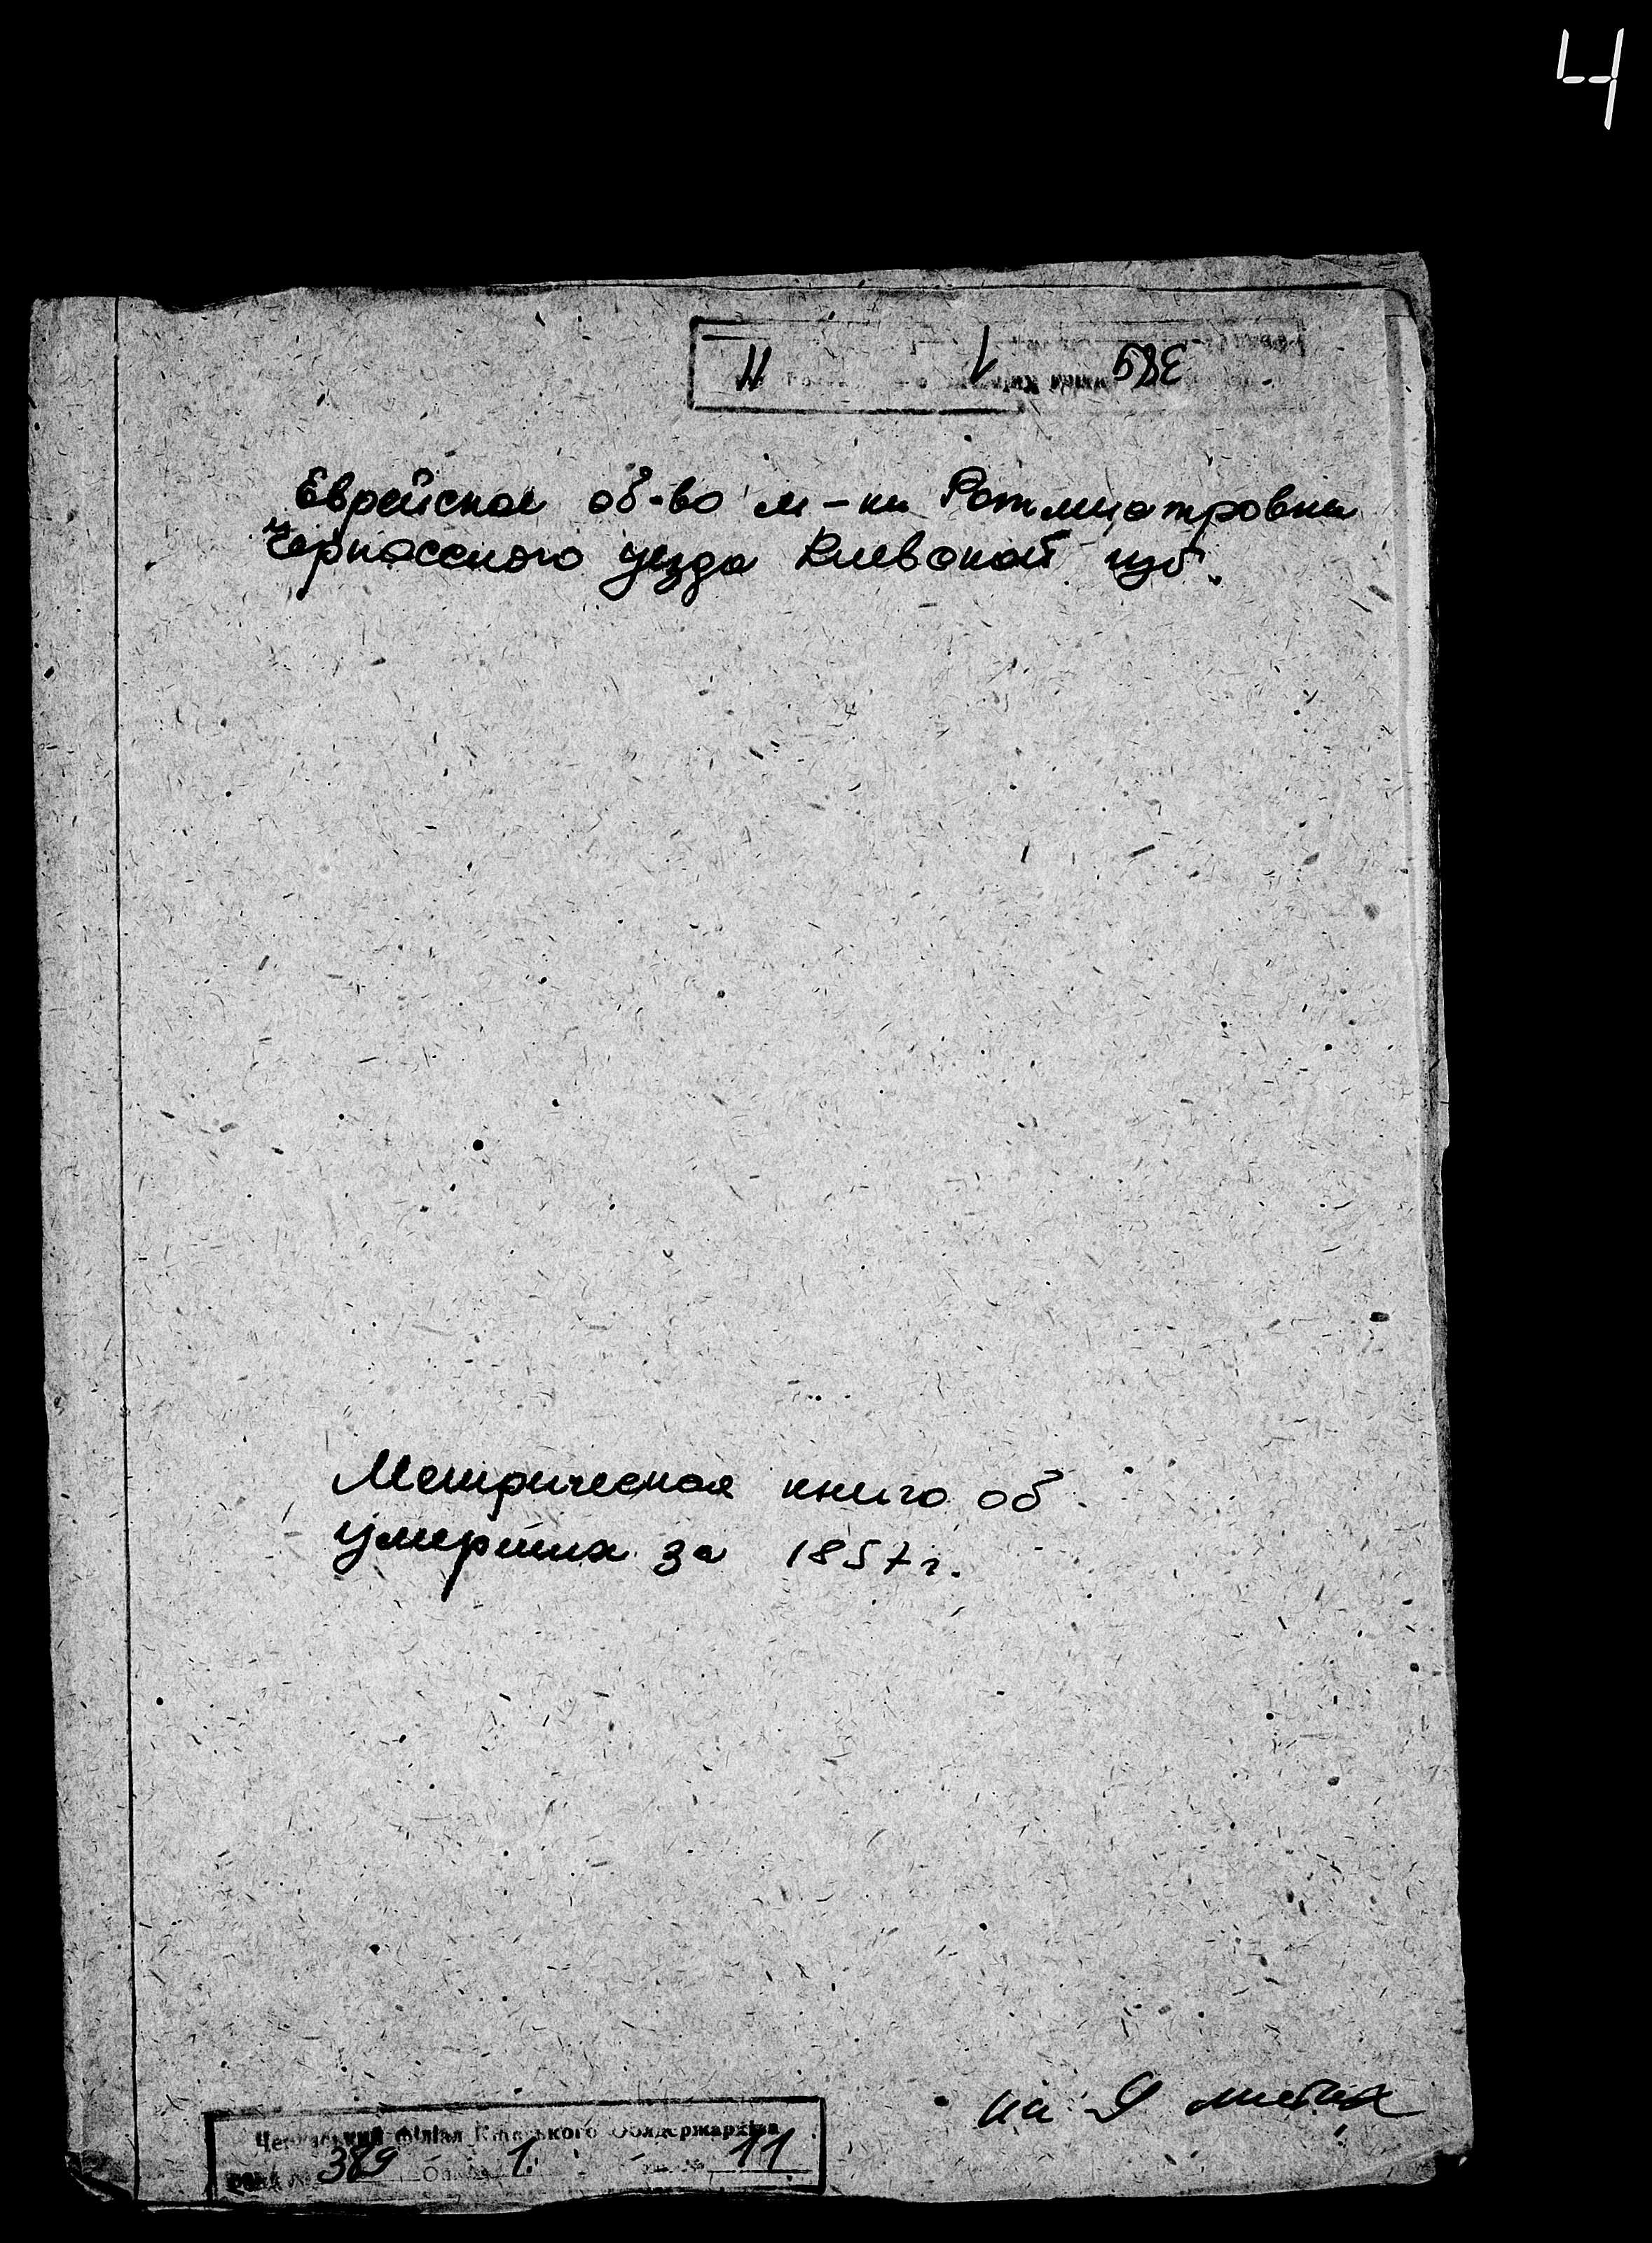 4
389 1 11
Еврейское об-во м-ки Ротмистровки
Черкасского уезда Киевской губ.
Метрическая книга об
умерших за 1857 г.
на 9 листах
Черкаський філіал Київського Облдержархіва
фонд № 389 Опись 1 11